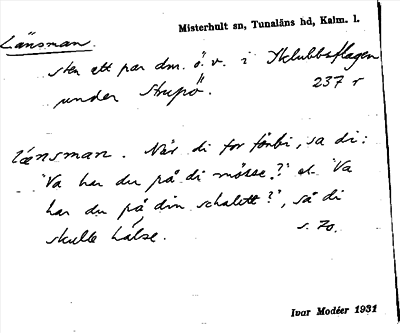 Misterhult sn, Tunaläns hd, Kalm. l.
Länsman
sten ett par dm. ö. v. i Sklubbsflagen
237 r
under Strupö.
Länsman. När di for förbi, sa di:
'Va har du på di mösse?' el. 'Va
har du på din schalett?', så di
skulle hälse. s. 70.
Ivar Modéer 1931